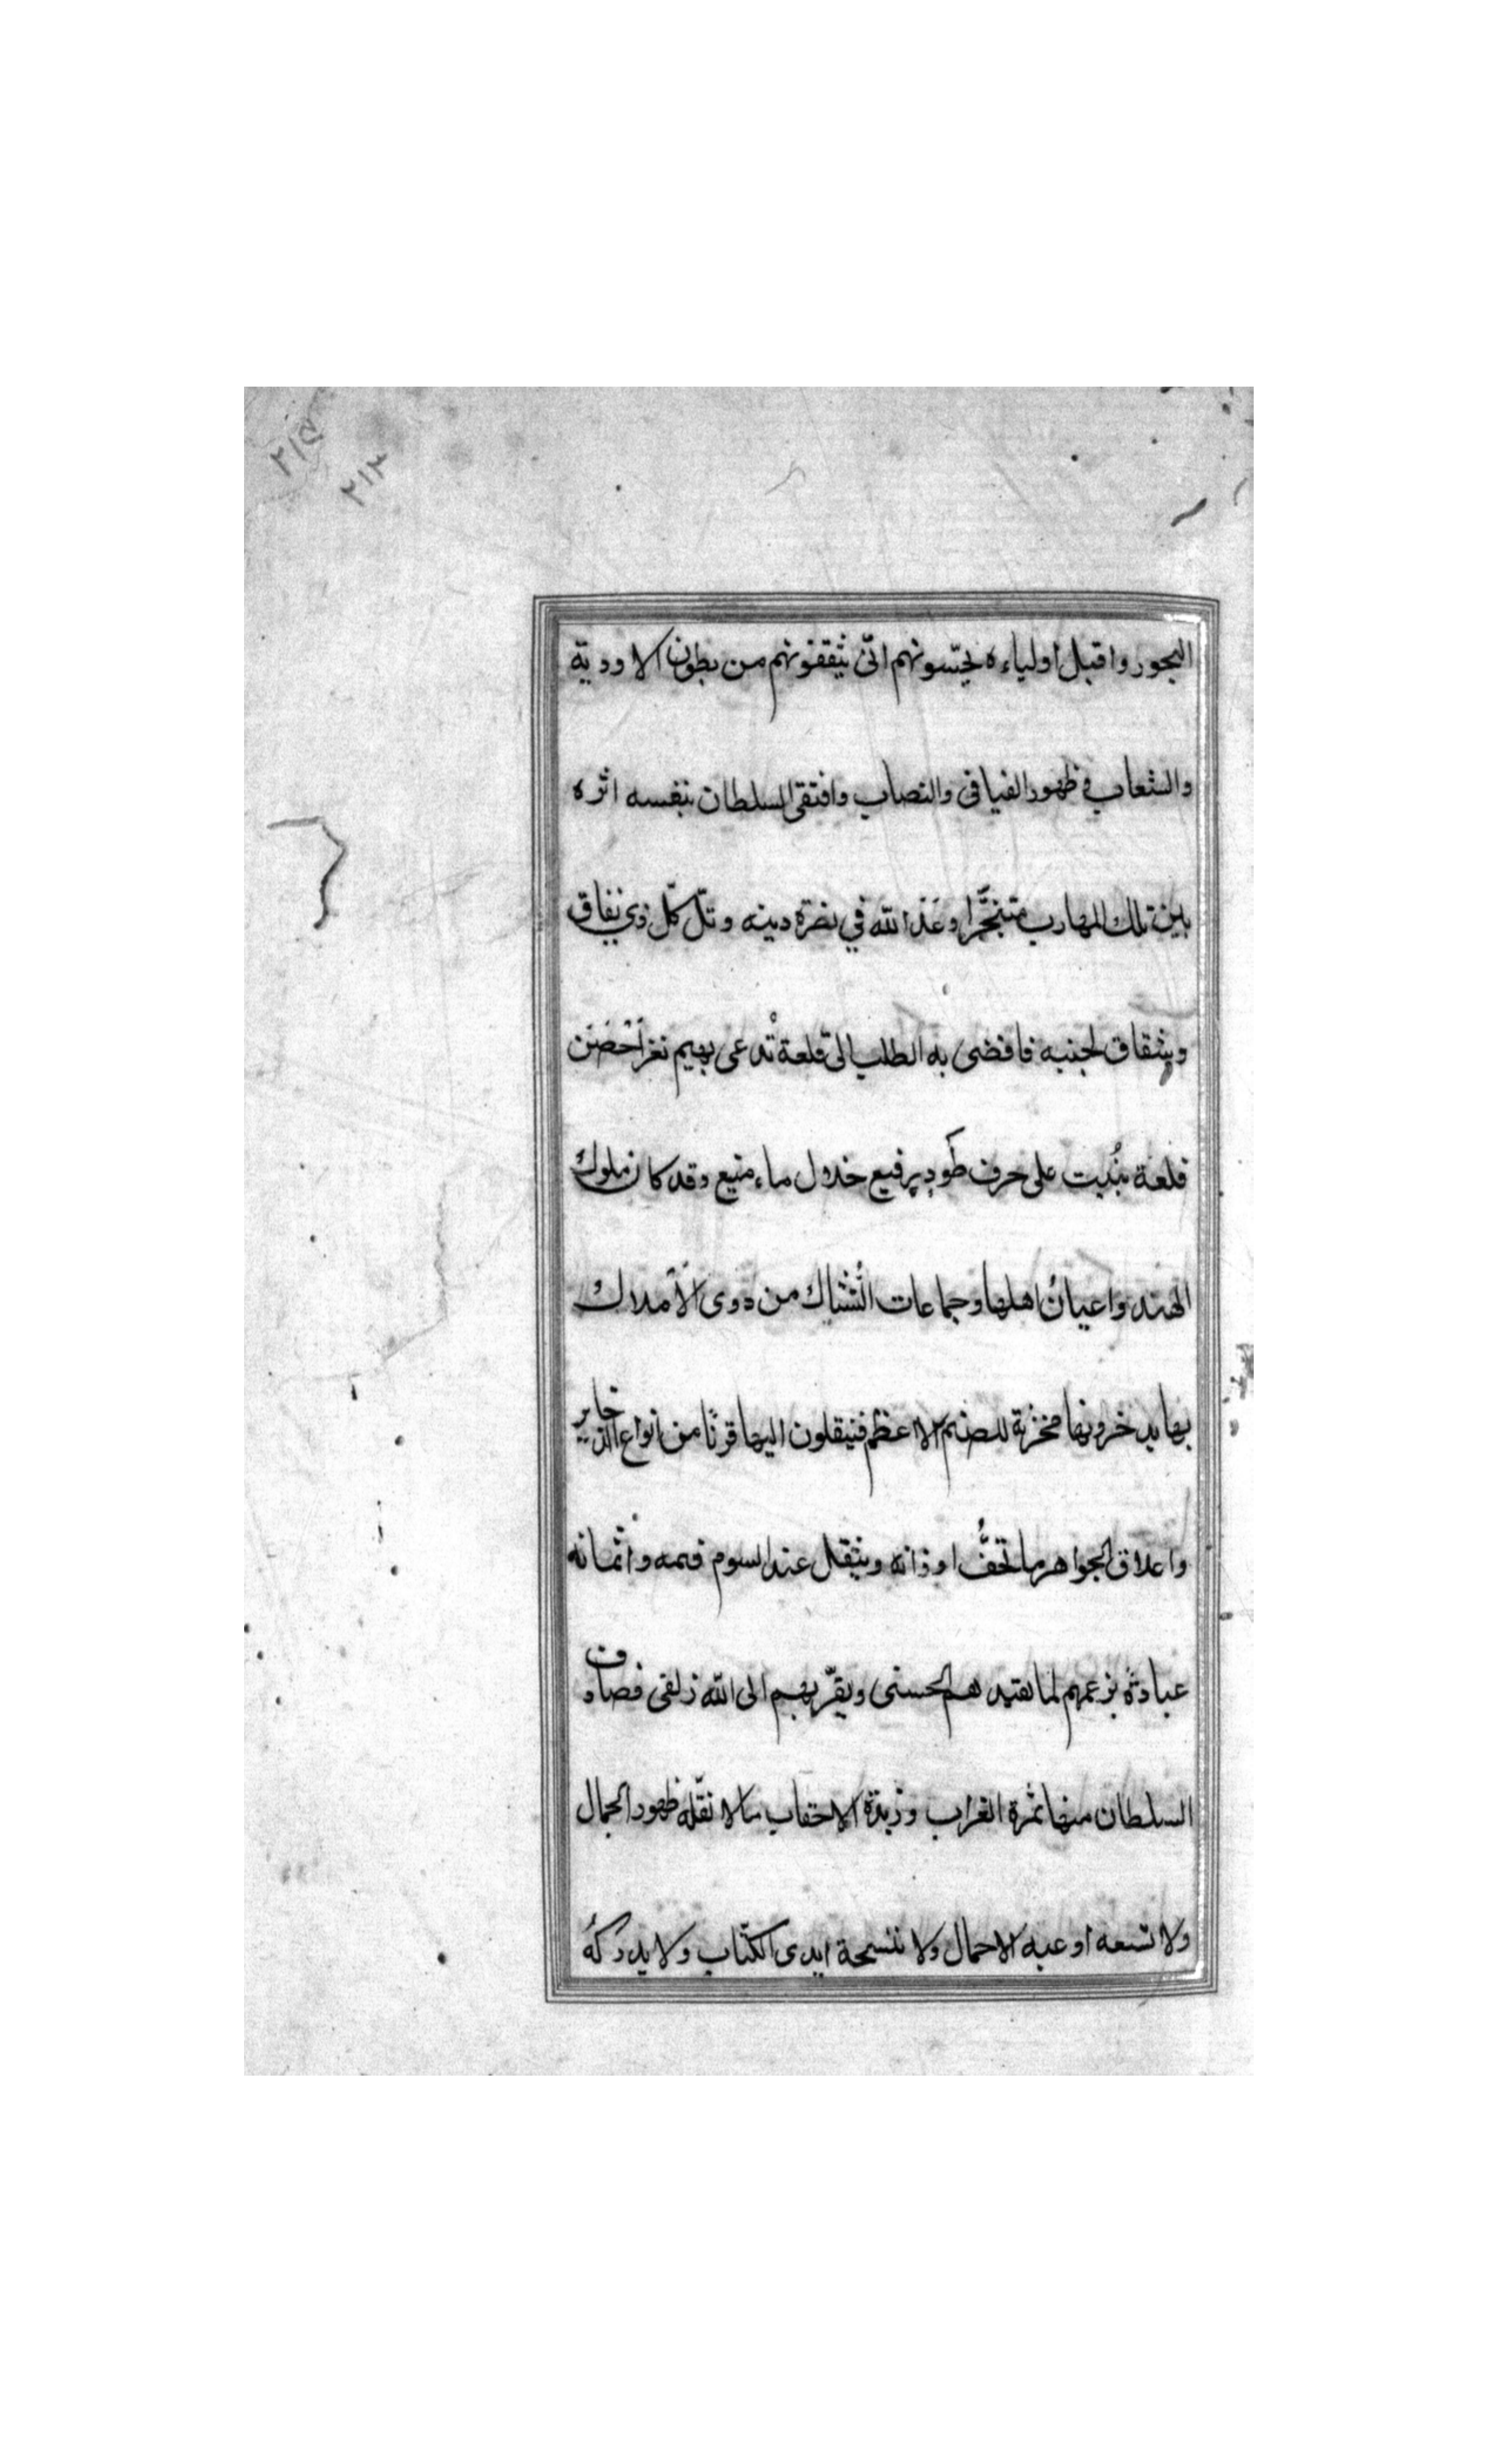 ٢١٥
٢١٣
البحور واقبل اولياءه يحتسونهم انّى يثقفونهم من بطون الاودية
والشعاب فى ظهور الفيافى والنصاب وافتقى السلطان بنفسه اثره
بين تلك المهارب متنجّزًا وعَد الله في نصرة دينه وتلّ كلّ ذي نفاق
وشقاق لجنبه فافضى به الطلب الى قلعة تُدعى بهيم نغر احْصَن
قلعة بُنيت على حرف طَود رفيع خلال ماء منيع وقد كان ملوك
الهند واعيان اهلها وجماعات النُسّاك من ذوى الاَملاك
بها يدخرونها مخزنة للصنم الاعظم فينقلون اليها قرنًا من انواع الذخاير
واعلاق الجواهر ما تخفُّ اوزانه ويثقل عند السوم قيمه واثمانه
عبادةً بزعمهم لما يفتيد هم الحسنى ويقرّ بهم الى الله زلفى فصادف
السلطان منها ثمرة الغراب وزبدة الاحقاب ما لا تقلّه ظهور الجمال
ولا تسعه اوعيه الاحمال ولا تنسخه ايدى الكتّاب ولا يدركهُ